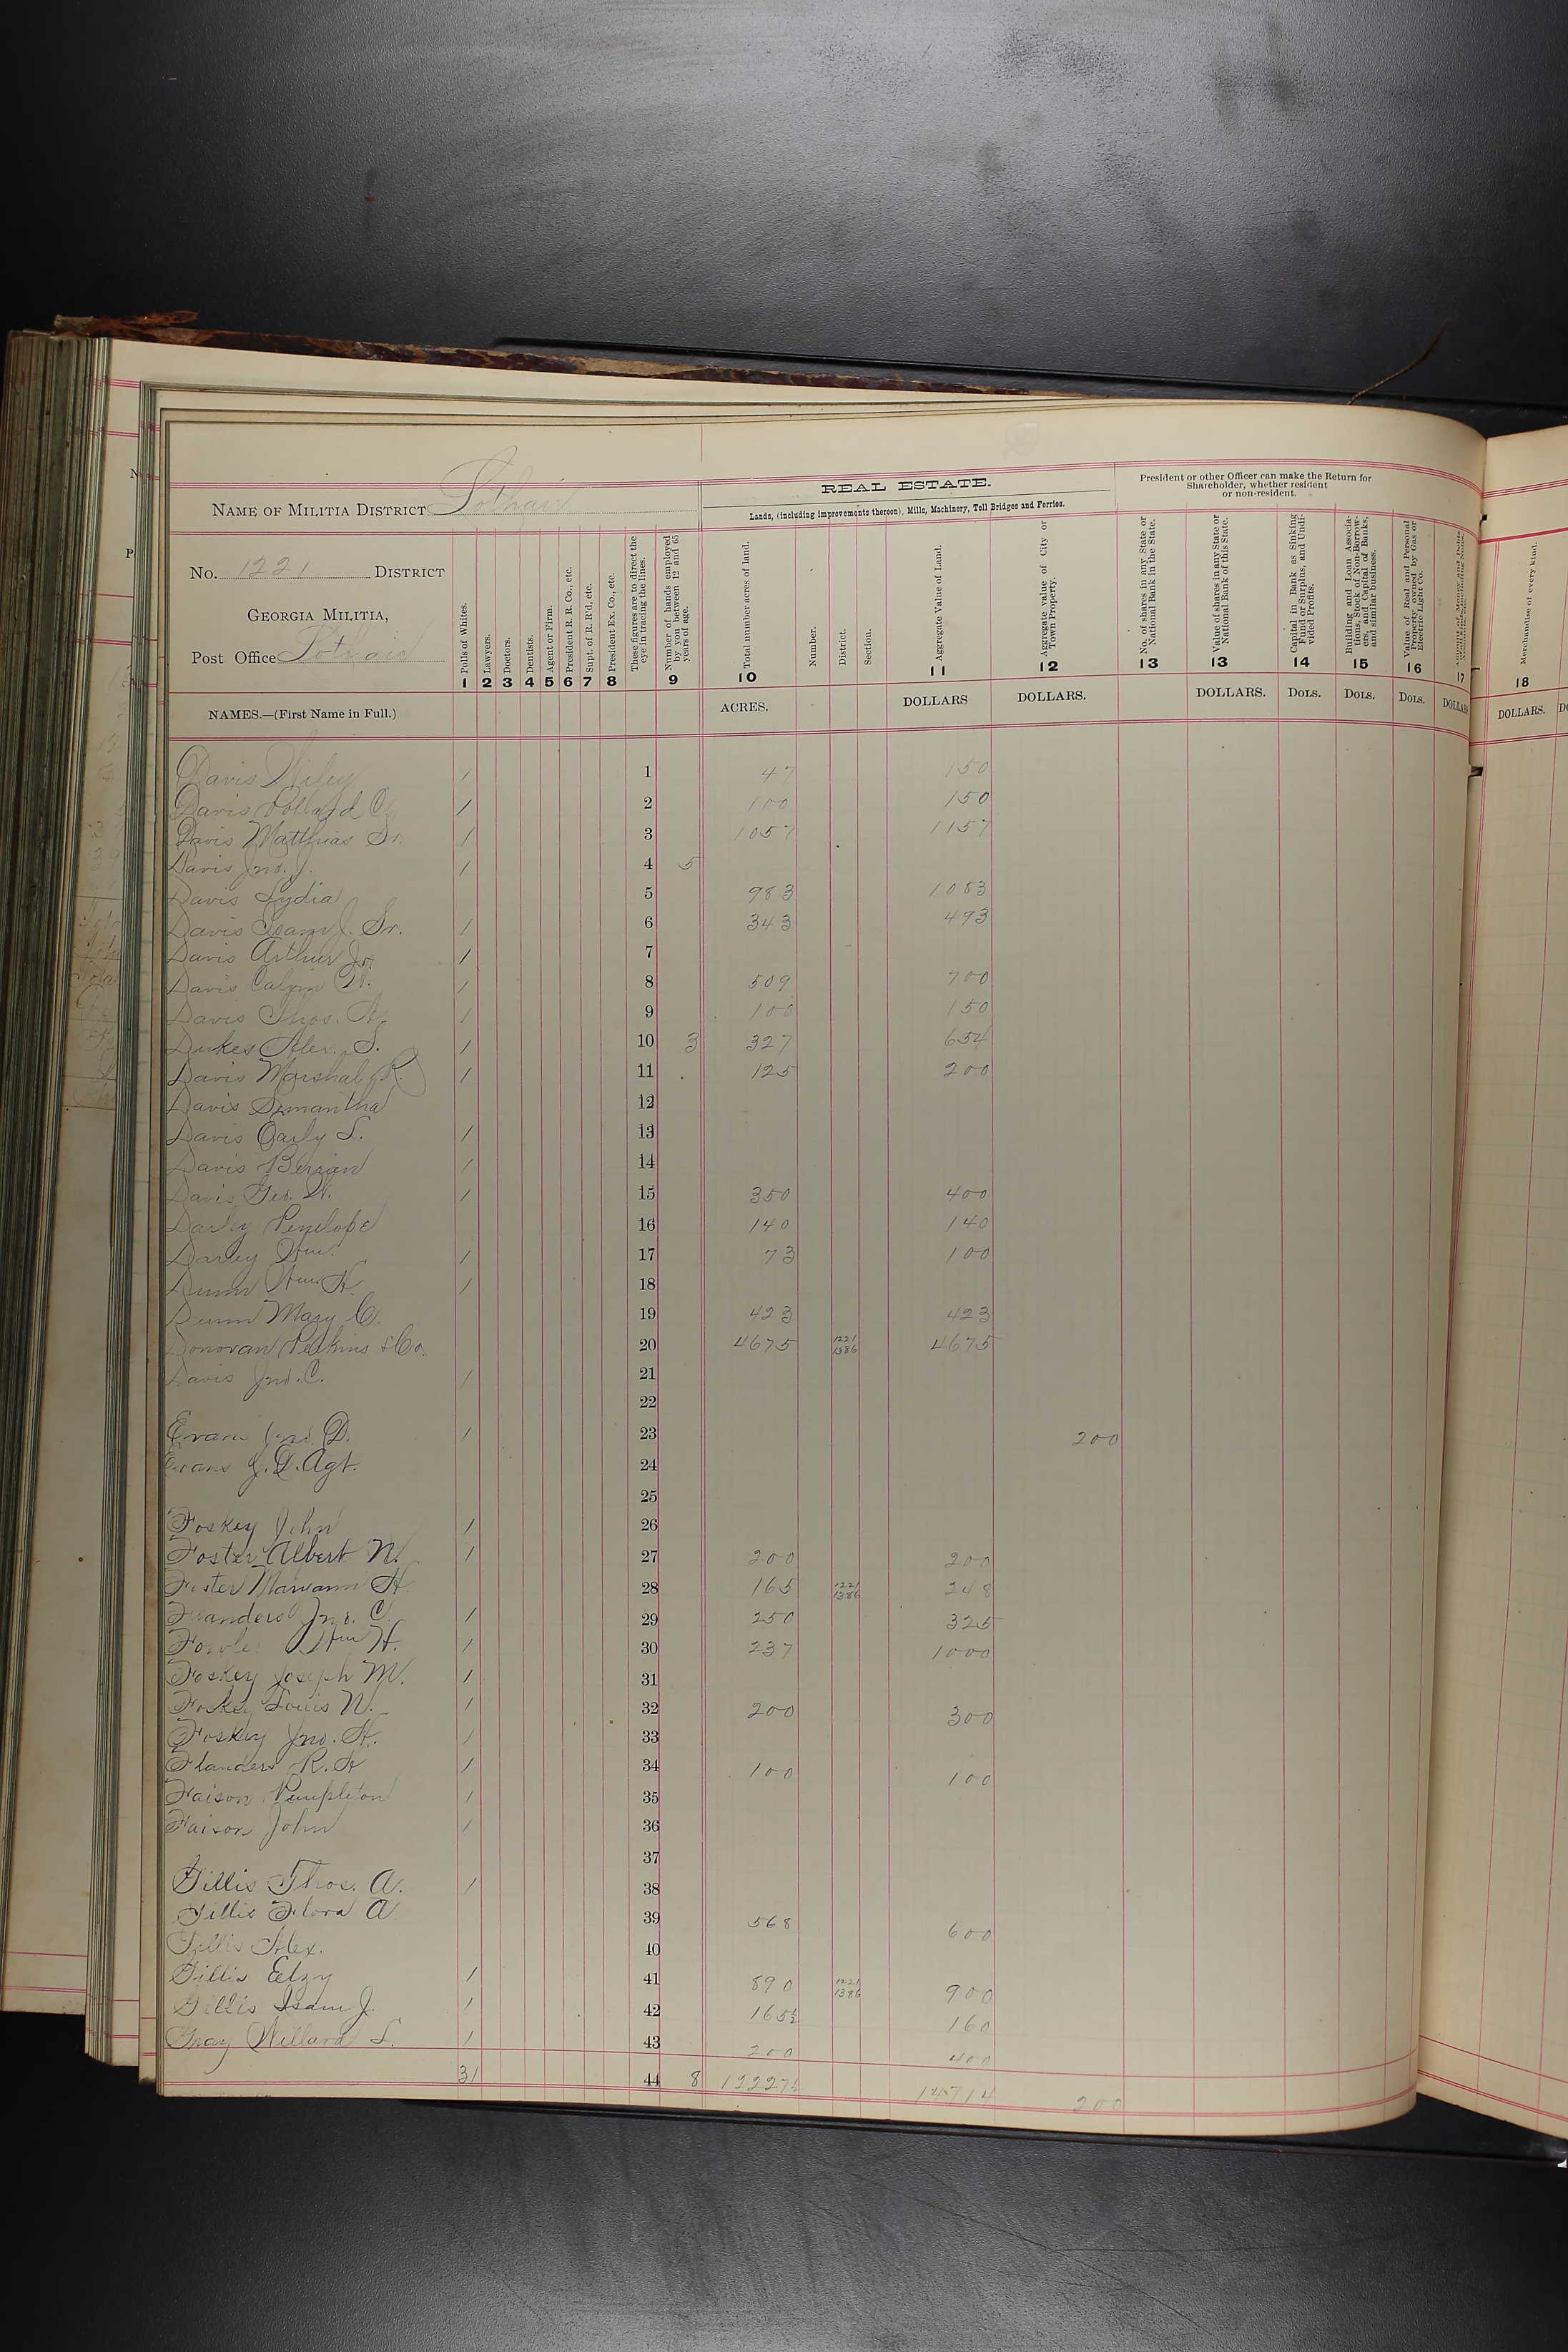 NAME OF MILITIA DISTRICT Lothair
No. 1221 DISTRICT
GEORGIA MILITIA,
Post Office Lothair
NAMES.—(First Name in Full.)
Polls of Whites. 1
Lawyers. 2
Doctors. 3
Dentists. 4
Agent or Firm. 5
President R. R. Co., etc. 6
Supt. of R. R'd, etc. 7
President Ex. Co., etc. 8
These figures are to direct the eye in tracing the lines.
Number of hands employed by you between 12 and 65 years of age. 9
REAL ESTATE.
Lands, (including improvements thereon), Mills, Machinery, Toll Bridges and Ferries.
Total number acres of land. 10 ACRES.
Number.
District.
Section.
Aggregate Value of Land. 11 DOLLARS
Aggregate value of City or Town Property. 12 DOLLARS.
President or other Officer can make the Return for Shareholder, whether resident or non-resident.
No. of shares in any State or National Bank in the State. 13
Value of shares in any State or National Bank of this State. 13 DOLLARS.
Capital in Bank as Sinking Fund or Surplus, and Undivided Profits. 14 DOLS.
Building and Loan Associations, Stock of Non-Borrowers, and Capital of Banks, and similar business. 15 DOLS.
Value of Real and Personal Property owned by Gas or Electric Light Co. 16 DOLS.
17 DOLLARS
Merchandise of every kind. 18 DOLLARS.
Davis Wiley / 1 47 150
Davis Pollard C / 2 100 150
Davis Matthias Sr. / 3 1057 1157
Davis Jno. J. / 4 5
Davis Lydia 5 983 1083
Davis Isam J. Sr. / 6 343 493
Davis Arthur Jr. / 7
Davis Calvin W. / 8 509 700
Davis Thos. A. / 9 100 150
Dukes Alex. S. / 10 3 327 654
Davis Marshal R. / 11 125 200
Davis Samantha 12
Davis Early S. / 13
Davis Berrian / 14
Davis Geo. W. / 15 350 400
Darley Penelope 16 140 140
Darley Wm. / 17 73 100
Dunn Wm. H. / 18
Dunn Mary C. 19 423 423
Donovan Perkins & Co. 20 4675 1221 1386 4675
Davis Jno. C. / 21
22
Evans Jno. D. / 23 200
Evans J. D. Agt. 24
25
Foskey John / 26
Foster Albert N. / 27 200 200
Foster Mariann H. 28 165 1221 1386 248
Flanders Jno. C. / 29 250 325
Fowler Wm H. / 30 237 1000
Foskey Joseph M. / 31
Foskey Louis N. / 32 200 300
Foskey Jno. H. / 33
Flanders R. H / 34 100 100
Faison Pempleton / 35
Faison John / 36
37
Gillis Thos. A. / 38
Gillis Flora A 39 568 600
Gillis Alex. 40
Gillis Elzy / 41 890 1221 1386 900
Gillis Isam J. / 42 165½ 160
Gray Willard L. / 43 200 400
31 44 8 12227½ 14714 200